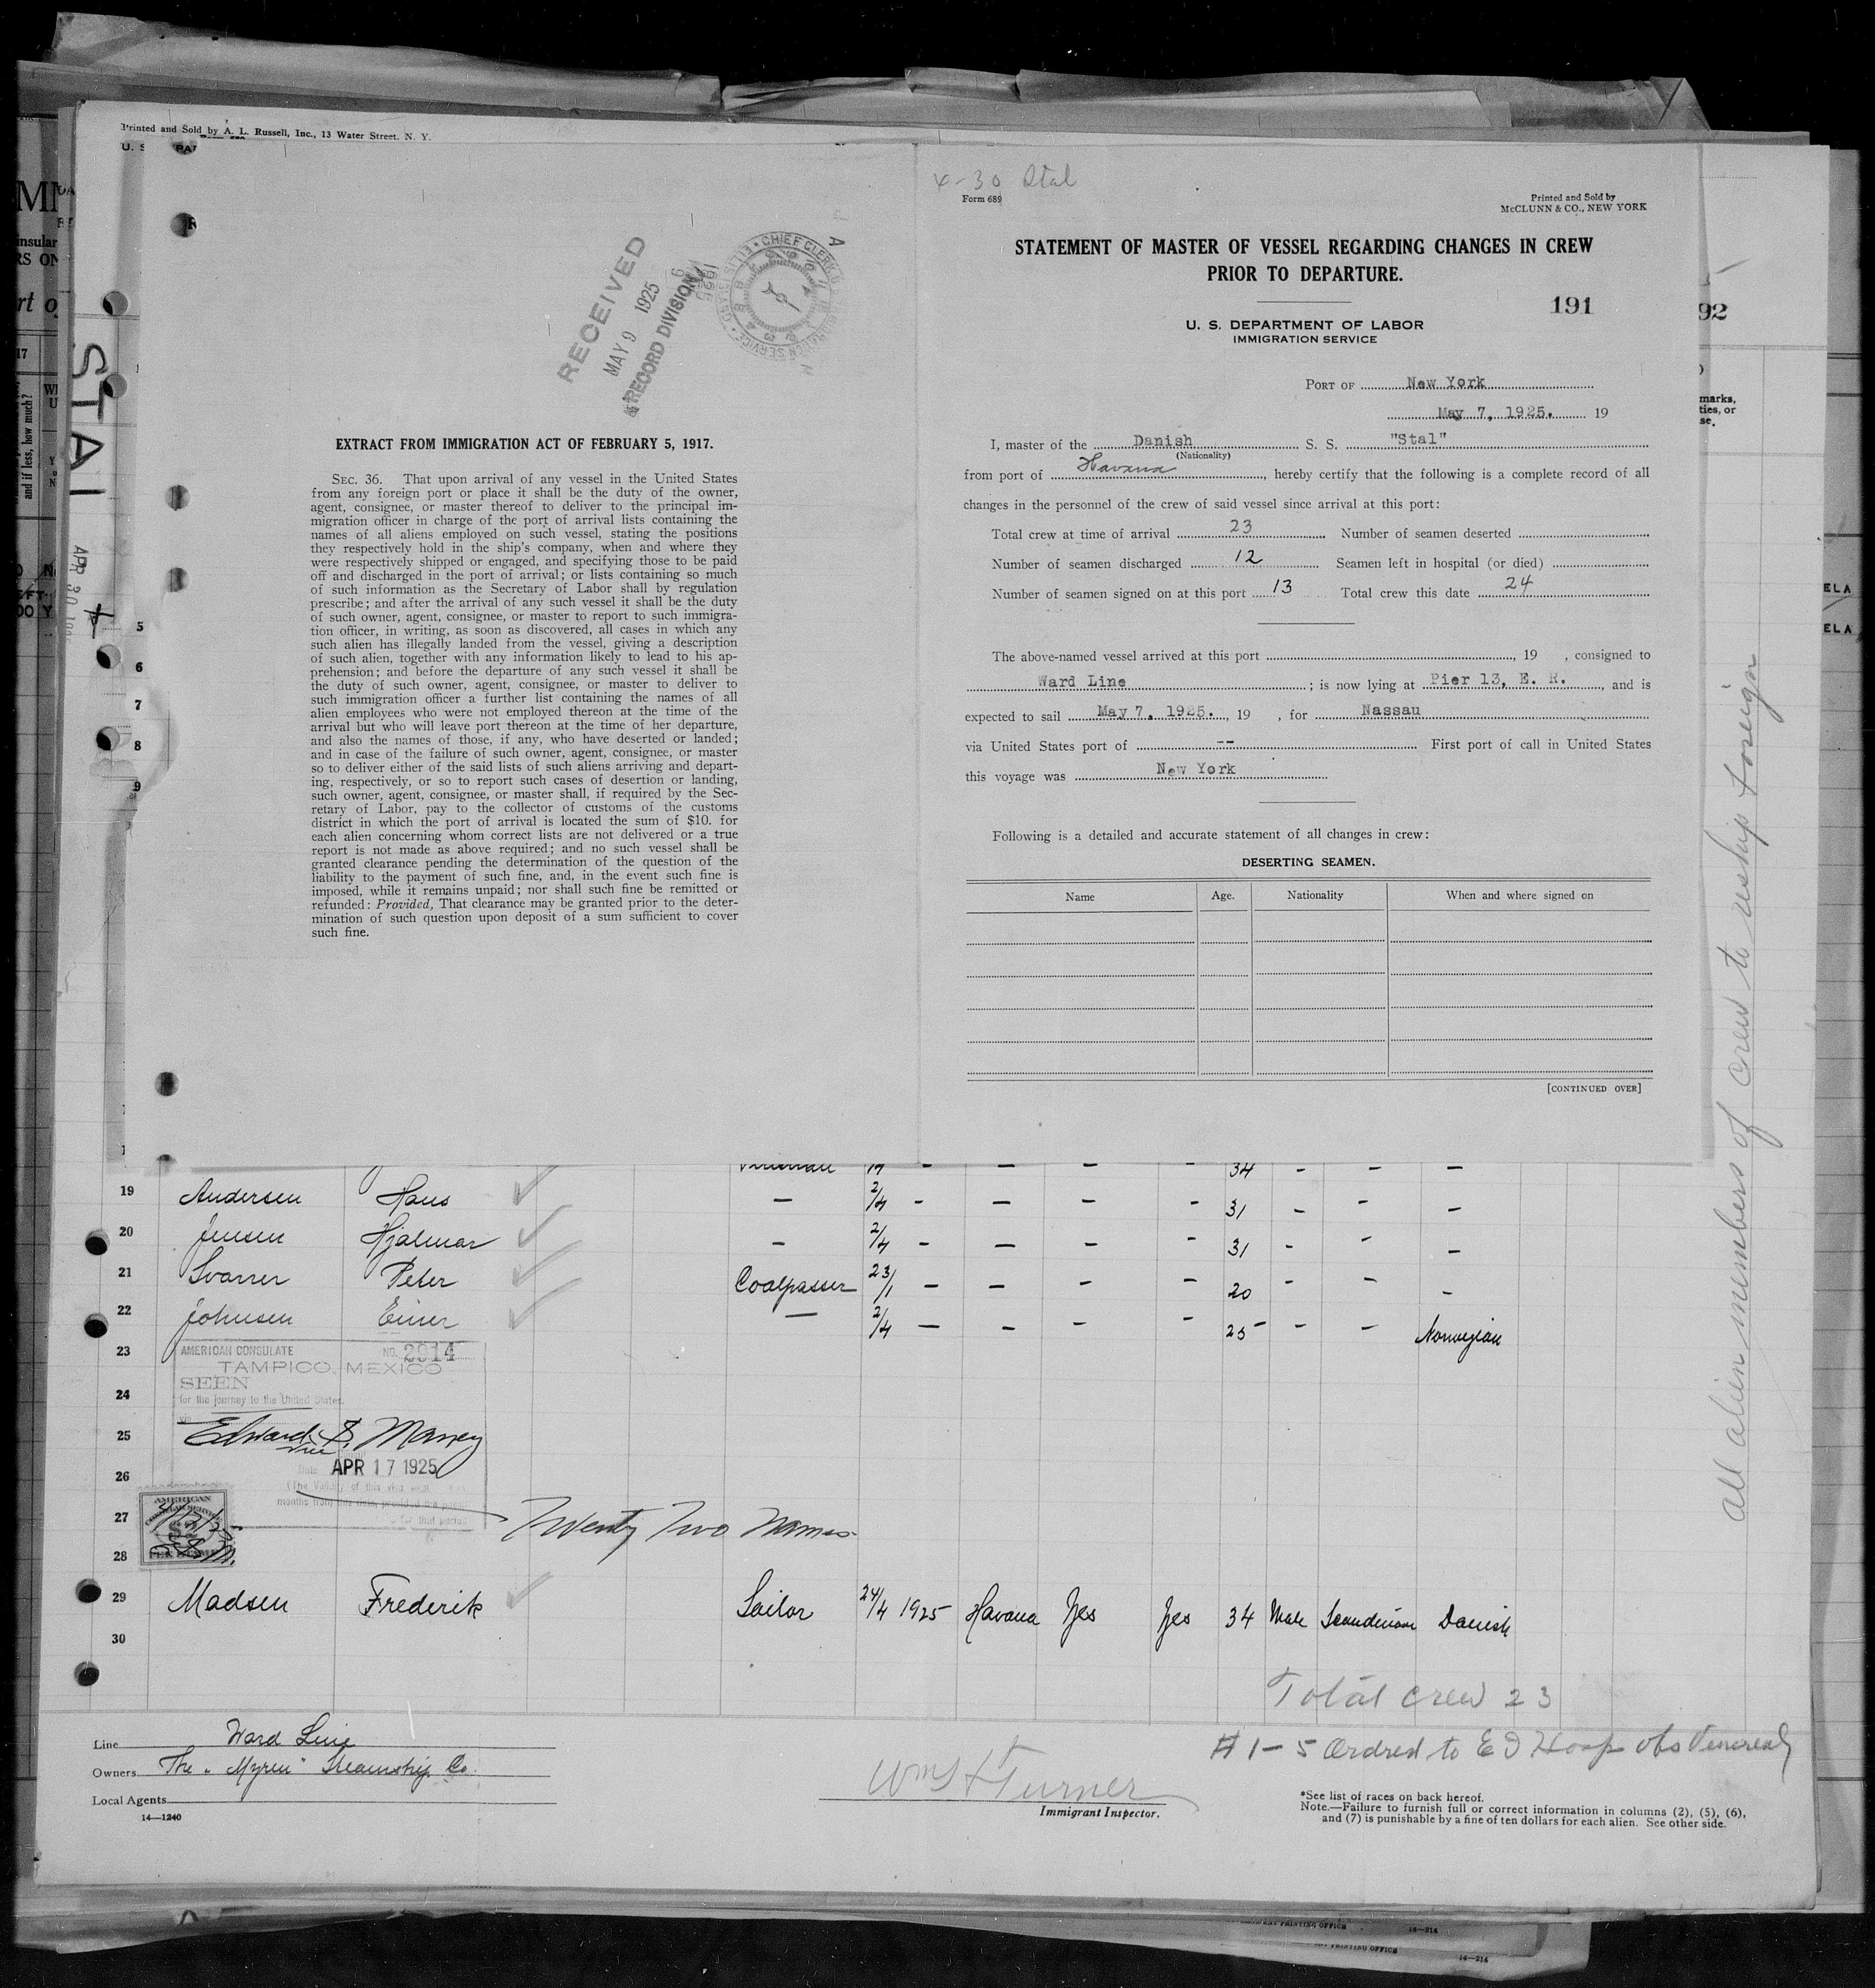 Printed and Sold by A. L. Russell, Inc., 13 Water Street, N. Y.
STAL
APR 30
RECEIVED
MAY 9 1925
RECORD DIVISION
EXTRACT FROM IMMIGRATION ACT OF FEBRUARY 5, 1917.
SEC. 36. That upon arrival of any vessel in the United States
from any foreign port or place it shall be the duty of the owner,
agent, consignee, or master thereof to deliver to the principal im-
migration officer in charge of the port of arrival lists containing the
names of all aliens employed on such vessel, stating the positions
they respectively hold in the ship's company, when and where they
were respectively shipped or engaged, and specifying those to be paid
off and discharged in the port of arrival; or lists containing so much
of such information as the Secretary of Labor shall by regulation
prescribe; and after the arrival of any such vessel it shall be the duty
of such owner, agent, consignee, or master to report to such immigra-
tion officer, in writing, as soon as discovered, all cases in which any
such alien has illegally landed from the vessel, giving a description
of such alien, together with any information likely to lead to his ap-
prehension; and before the departure of any such vessel it shall be
the duty of such owner, agent, consignee, or master to deliver to
such immigration officer a further list containing the names of all
alien employees who were not employed thereon at the time of the
arrival but who will leave port thereon at the time of her departure,
and also the names of those, if any, who have deserted or landed;
and in case of the failure of such owner, agent, consignee, or master
so to deliver either of the said lists of such aliens arriving and depart-
ing, respectively, or so to report such cases of desertion or landing,
such owner, agent, consignee, or master shall, if required by the Sec-
retary of Labor, pay to the collector of customs of the customs
district in which the port of arrival is located the sum of $10. for
each alien concerning whom correct lists are not delivered or a true
report is not made as above required; and no such vessel shall be
granted clearance pending the determination of the question of the
liability to the payment of such fine, and, in the event such fine is
imposed, while it remains unpaid; nor shall such fine be remitted or
refunded: Provided, That clearance may be granted prior to the deter-
mination of such question upon deposit of a sum sufficient to cover
such fine.
4-30 Stal
Form 689
Printed and Sold by
McCLUNN & CO., NEW YORK
STATEMENT OF MASTER OF VESSEL REGARDING CHANGES IN CREW
PRIOR TO DEPARTURE.
191
U. S. DEPARTMENT OF LABOR
IMMIGRATION SERVICE
PORT OF New York
May 7, 1925. 19
I, master of the Danish S. S. "Stal"
(Nationality)
from port of Havana, hereby certify that the following is a complete record of all
changes in the personnel of the crew of said vessel since arrival at this port:
Total crew at time of arrival 23 Number of seamen deserted
Number of seamen discharged 12 Seamen left in hospital (or died)
Number of seamen signed on at this port 13 Total crew this date 24
The above-named vessel arrived at this port , 19 , consigned to
Ward Line ; is now lying at Pier 13, E. R. , and is
expected to sail May 7, 1925. , 19 , for Nassau
via United States port of -- First port of call in United States
this voyage was New York
Following is a detailed and accurate statement of all changes in crew:
DESERTING SEAMEN.
Name Age. Nationality When and where signed on
[CONTINUED OVER]
92
5
6
7
8
9
34 - - -
19 Andersen Hans - 2/4 - - - - 31 - - -
20 Jensen Hjalmar - 2/4 - - - - 31 - - -
21 Svarrer Peter Coalpasser 23/1 - - - - 20 - - -
22 Johnsen Einer - 2/4 - - - - 25 - - Norwegian
23
24
25
26
27
28
AMERICAN CONSULATE NO. 2914
TAMPICO, MEXICO
SEEN
for the journey to the United States.
Edward S. Maney
Vice
APR 17 1925
Twenty Two Names
29 Madsen Frederik Sailor 24/4 1925 Havana Yes Yes 34 Male Scandinavian Danish
30
Total crew 23
#1-5 Ordred to E I Hosp obs Venereal
Line Ward Line
Owners The "Myren" Steamship Co.
Local Agents
14—1240
Wm H Turner
Immigrant Inspector.
*See list of races on back hereof.
Note.—Failure to furnish full or correct information in columns (2), (5), (6),
and (7) is punishable by a fine of ten dollars for each alien. See other side.
All alien members of crew to reship foreign
14—214
14—214